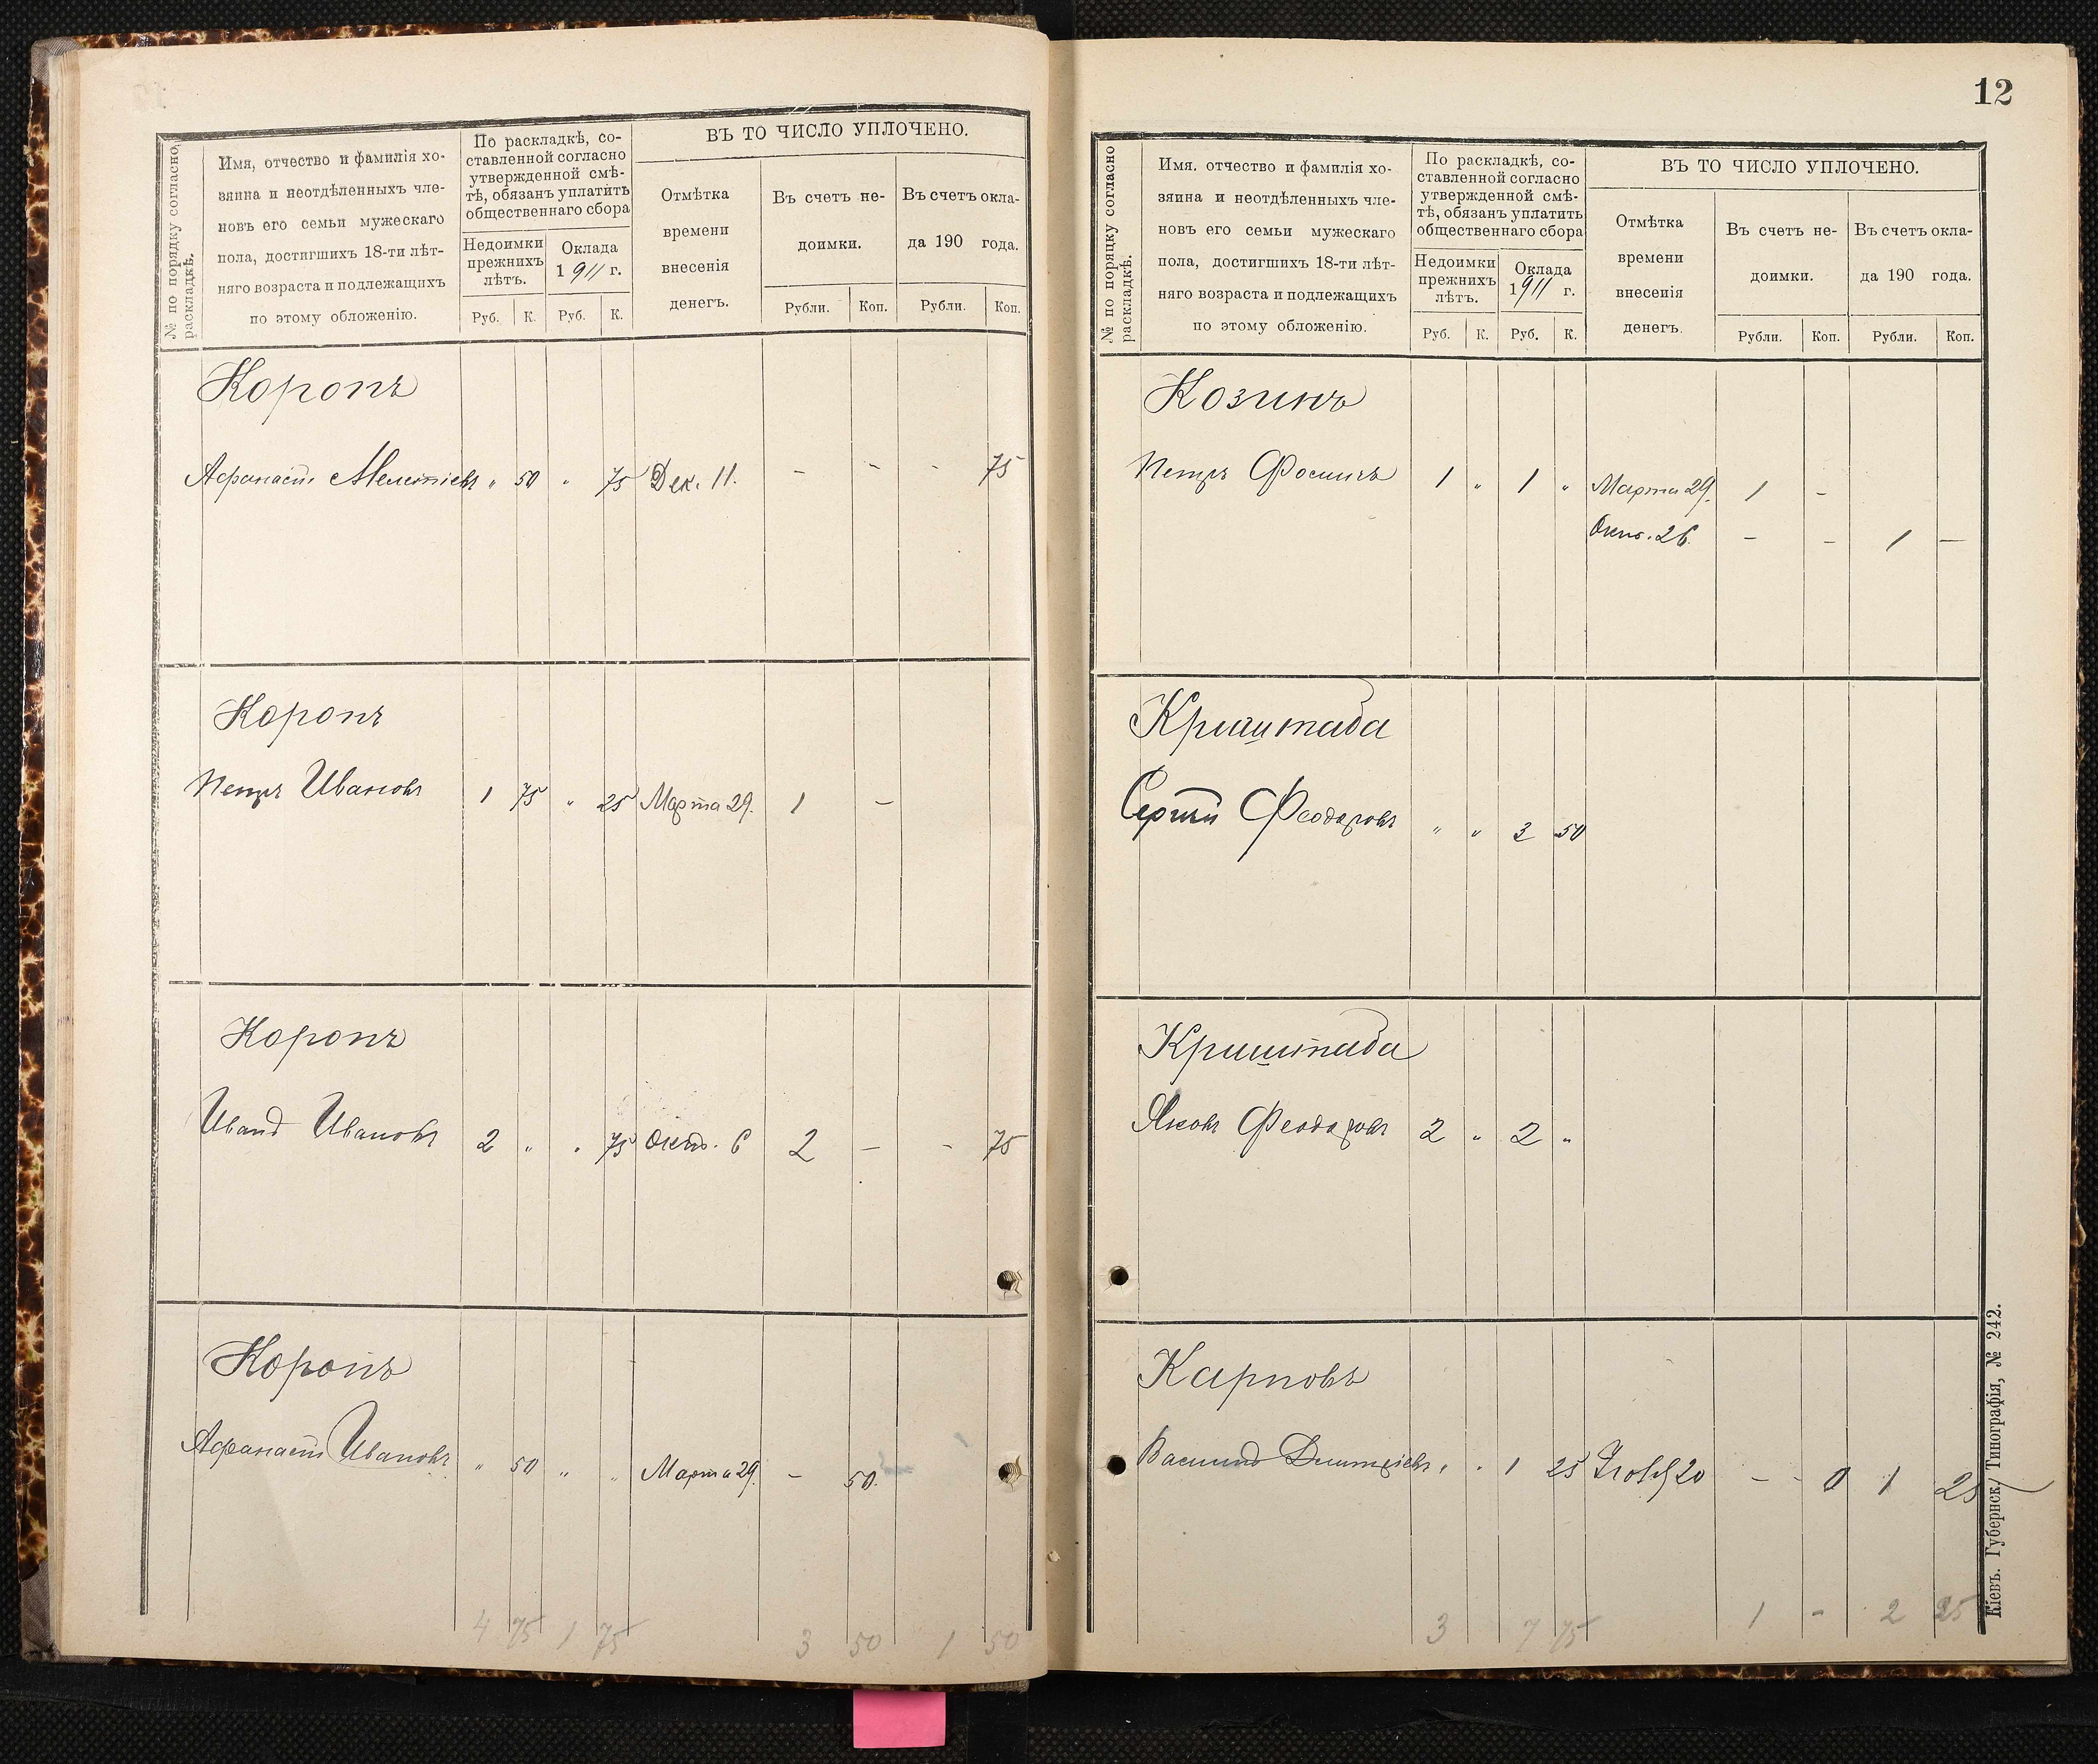 № по порядку согласно
раскладкѣ.
Имя, отчество и фамилія хо-
зяина и неотдѣленныхъ чле-
новъ его семьи мужескаго
пола, достигшихъ 18-ти лѣт-
няго возраста и подлежащихъ
по этому обложенію.
По раскладкѣ, со-
ставленной согласно
утвержденной смѣ-
тѣ, обязанъ уплатить
общественнаго сбора
Недоимки
прежнихъ
лѣтъ.
Оклада
1911 г.
Руб. К. Руб. К.
ВЪ ТО ЧИСЛО УПЛОЧЕНО.
Отмѣтка
времени
внесенія
денегъ.
Въ счетъ не-
доимки.
Въ счетъ окла-
да 190 года.
Рубли. Коп. Рубли. Коп.
Коропъ
Афанасій Мелетіевъ " 50 " 75 Дек. 11. - - - 75
Коропъ
Петръ Ивановъ 1 75 " 25 Марта 29. 1 -
Коропъ
Иванъ Ивановъ 2 " " 75 Окт. 6 2 - - 75
Коропъ
Афанасій Ивановъ " 50 " " Марта 29. - 50.
4 75 1 75 3 50 1 50
12
№ по порядку согласно
раскладкѣ.
Имя, отчество и фамилія хо-
зяина и неотдѣленныхъ чле-
новъ его семьи мужескаго
пола, достигшихъ 18-ти лѣт-
няго возраста и подлежащихъ
по этому обложенію.
По раскладкѣ, со-
ставленной согласно
утвержденной смѣ-
тѣ, обязанъ уплатить
общественнаго сбора
Недоимки
прежнихъ
лѣтъ.
Оклада
1911 г.
Руб. К. Руб. К.
ВЪ ТО ЧИСЛО УПЛОЧЕНО.
Отмѣтка
времени
внесенія
денегъ.
Въ счетъ не-
доимки.
Въ счетъ окла-
да 190 года.
Рубли. Коп. Рубли. Коп.
Козинъ
Петръ Фоминъ 1 " 1 " Марта 29. 1 -
Окт. 26. - - 1 -
Криштаба
Сергѣй Феодоровъ " " 3 50
Криштаба
Яковъ Феодоровъ 2 " 2 "
Карповъ
Василій Дмитріевъ " " 1 25 20 - 0 1 25
3 7 75 1 - 2 25
Кіевъ. Губернск. Типографія, № 242.